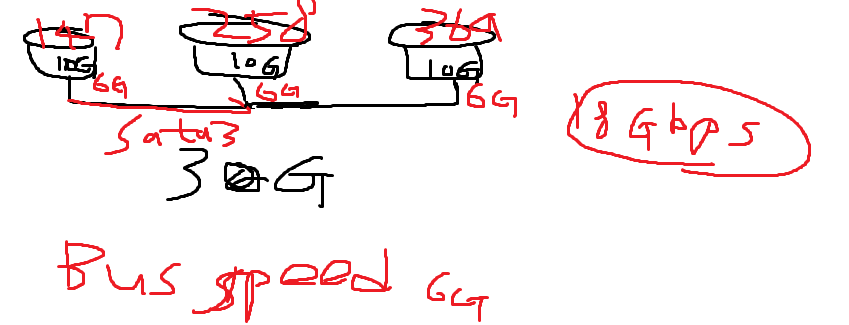 147 258 369
10G 10G 10G
6G 6G 6G
Sata3
18 Gbps
30G
Bus speed 6G